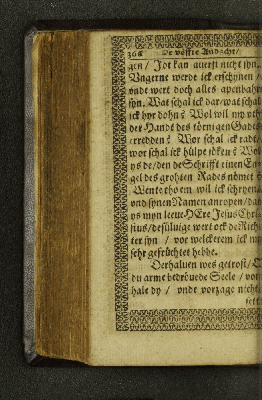 366 De vöffte Andacht/
gen / Jot kan auerst nicht syn.
Vngerne werde ick erschynen /
vnde wert doch alles apenbahr
syn. Wat schal ick dar/ wat schal
ick hyr dohn? Wol wil my vth
der Handt des törnigen Gades
erredden? Wor schal ick radt/
wor schal ick hülpe söken? Wol
ys de/ den de Schrifft einen En
gel des grohten Rades nömet?
Wente tho em wil ick schryen
vnd synen Namen anropen/ dat
ys myn leeue HEre Jesus Chri
stus/ desüluige wert ock de Rich
ter syn / vor welckerem ick my
sehr gefrüchtet hebbe.
Derhaluen wes getrost/
du arme bedröuede Seele / vor
hale dy / vnde vorzage nicht